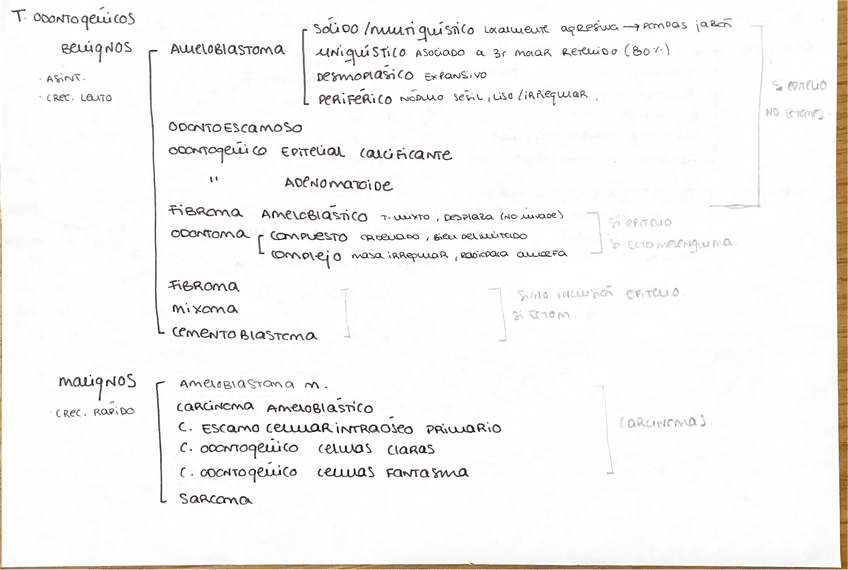 T. ODONTOGÉNICOS
BENIGNOS
· ASINT.
· CREC. LENTO
AMELOBLASTOMA
SÓLIDO / MULTIQUÍSTICO LOCALMENTE AGRESIVA → POMPAS JABÓN
UNIQUÍSTICO ASOCIADO A 3r MOLAR RETENIDO (80%)
DESMOPLÁSICO EXPANSIVO
PERIFÉRICO NÓDULO SÉSIL, LISO / IRREGULAR.
SI EPITELIO
NO ECTOMES.
ODONTOESCAMOSO
ODONTOGÉNICO EPITELIAL CALCIFICANTE
" ADENOMATOIDE
FIBROMA AMELOBLÁSTICO T. MIXTO, DESPLAZA (NO INVADE)
ODONTOMA COMPUESTO ORDENADO, BIEN DELIMITADO
COMPLEJO MASA IRREGULAR, RADIOPACA AMORFA
SI EPITELIO
SI ECTOMESENQUIMA
FIBROMA
MIXOMA
CEMENTOBLASTOMA
SI/NO INCLUSIÓN EPITELIO.
SI ECTOM.
MALIGNOS
· CREC. RÁPIDO
AMELOBLASTOMA M.
CARCINOMA AMELOBLÁSTICO
C. ESCAMOCELULAR INTRAÓSEO PRIMARIO
C. ODONTOGÉNICO CELULAS CLARAS
C. ODONTOGÉNICO CELULAS FANTASMA
SARCOMA
CARCINOMAS.